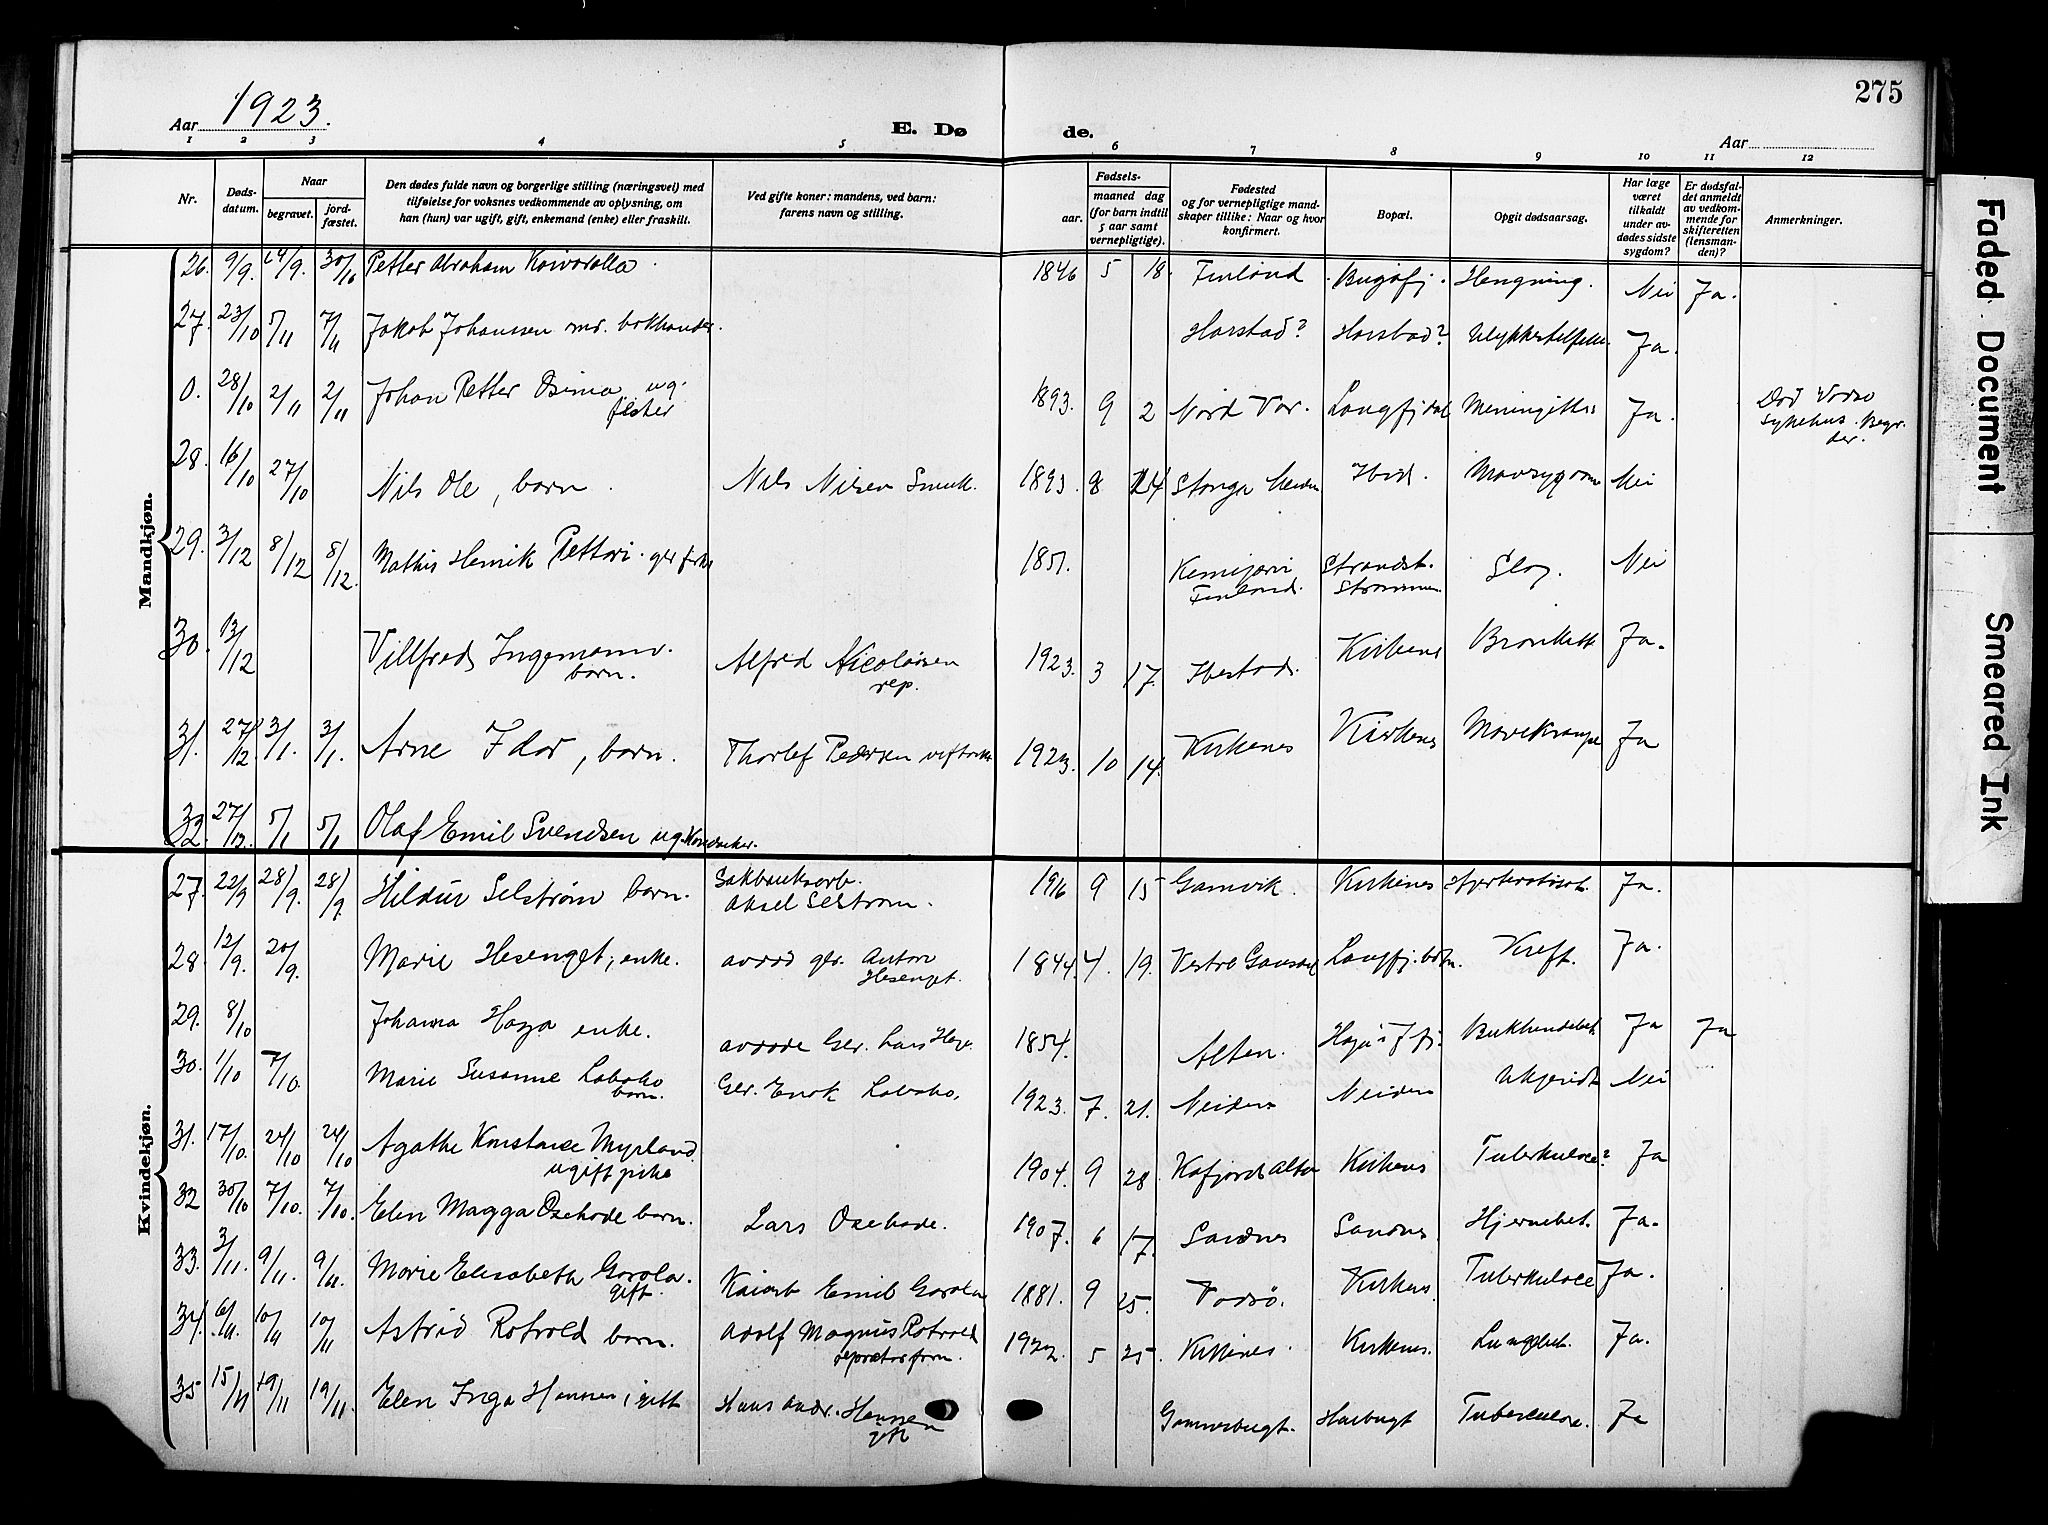 275
Aar 1923.
E. Døde.
Aar
1 2 3 4 5 6 7 8 9 10 11 12
Nr.
Dødsdatum.
Naar
begravet.
jordfæstet.
Den dødes fulde navn og borgerlige stilling (næringsvei) med
tilføielse for voksnes vedkommende av oplysning, om
han (hun) var ugift, gift, enkemand (enke) eller fraskilt.
Ved gifte koner: mandens, ved barn:
farens navn og stilling.
Fødsels-
aar.
maaned dag
(for barn indtil
5 aar samt
vernepligtige).
Fødested
og for vernepligtige mand-
skaper tillike: Naar og hvor
konfirmert.
Bopæl.
Opgit dødsaarsag.
Har læge
været
tilkaldt
under av-
dødes sidste
sygdom?
Er dødsfal-
det anmeldt
av vedkom-
mende for
skifteretten
(lensman-
den)?
Anmerkninger.
Mandkjøn.
26. 9/9. 14/9. 30/10 Petter Abraham 1846 5 18. Finland Bugøfj. Hengning. Nei Ja.
27. 23/10 5/11 7/11 Jakob Johanssen bokhandler. Harstad? Harstad? Ulykkestilfelle Ja.
0. 28/10 2/11 2/11 Johan Petter Osima ug. fisker 1893. 9 2 Nord Var. Langfjdal Meningitis Ja. Død Vadsø sykehus. Begr. der.
28. 16/10 27/10 Nils Ole, barn. Nils Nilsen 1893. 8 24 Neiden Ibid. Mavesygdom Nei
29. 3/12 8/12 8/12. Mathis Henrik Pettari. 1851. Kemijärvi Finland. Strandt. Strømmen. Slag. Nei
30. 13/12 Villfred Ingemann. barn. Alfred Nicolaisen rep. 1923. 3 17. Ibestad. Kirkenes Bronkitt Ja.
31. 27/12. 3/1. 3/1. Arne Idar, barn. Thorlef Pedersen 1923. 10 14. Kirkenes Kirkenes Mavekrampe Ja
32. 27/12. 5/1 5/1 Olaf Emil Svendsen ug.
Kvindekjøn.
27. 22/9 28/9. 28/9. Hildur Selstrøm barn. Aksel Selstrøm. 1916 9 15 Gamvik. Kirkenes Ja.
28. 12/9. 20/9. Marie Hesenget, enke. avdød Anton Hesenget. 1844 4. 19. Vestre Gausdal Langfj.botn. Kreft. Ja.
29. 8/10 Johanna Haga enke. avdøde Lars 1854. Alten. Ja Ja
30. 1/10 7/10. Marie Susanne Labako barn. Enok Labako. 1923. 7. 21. Neiden Neiden Ukjendt Nei
31. 17/10. 24/10 24/10 Agathe Konstance Myrland ugift pike 1904. 9 28 Kafjord Alta Kirkenes Tuberkulose? Ja
32 30/10 7/10. 7/10. Elen Magga barn. Lars 1907. 6 17. Sandnes Sandnes Hjernebet. Ja.
33. 3/11. 9/11. 9/11. Marie Elisabeth Garola. gift. Emil Garola 1881. 9 25. Vadsø. Kirkenes. Tuberkulose Ja.
34. 6/11. 10/11 10/11 Astrid Rotvold barn. Adolf Magnus Rotvold 1922. 5 25. Kirkenes. Kirkenes. Lungebet. Ja.
35 15/11 19/11 19/11. Elen Inga Hansen, gift Hans Andr. Hansen gift Tuberkulose. Ja
Faded Document
Smeared Ink